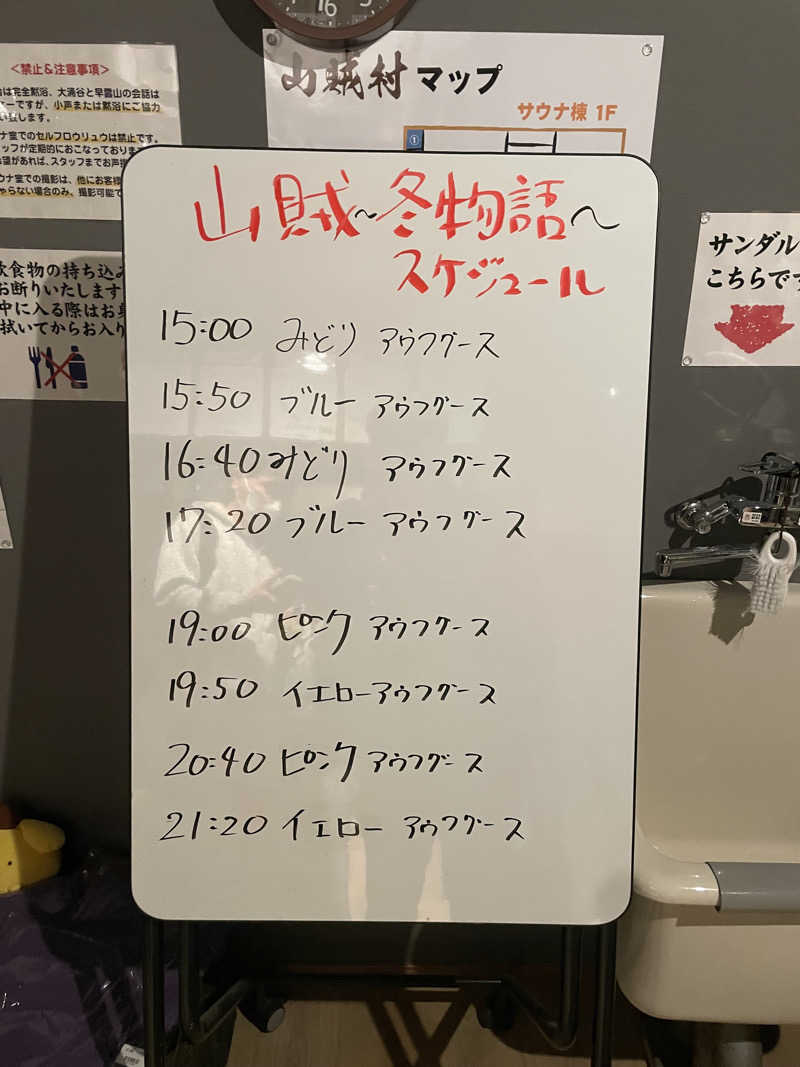 16
<禁止&注意事項>
は完全黙浴、大涌谷と早雲山の会話は
ーですが、小声または黙浴にご協力
します。
ナ室でのセルフロウリュウは禁止です。
ッフが定期的におこなっておりま
希望があれば、スタッフまでお声掛
ウナ室での撮影は、他にお客様
ゃらない場合のみ、撮影可能で
山賊村 マップ
サウナ棟 1F
①
飲食物の持ち込み
お断りいたします
中に入る際はお身
拭いてからお入り
サンダル
こちらです
山賊〜冬物語〜
スケジュール
15:00 みどり アウフグース
15:50 ブルー アウフグース
16:40 みどり アウフグース
17:20 ブルー アウフグース
19:00 ピンク アウフグース
19:50 イエロー アウフグース
20:40 ピンク アウフグース
21:20 イエロー アウフグース